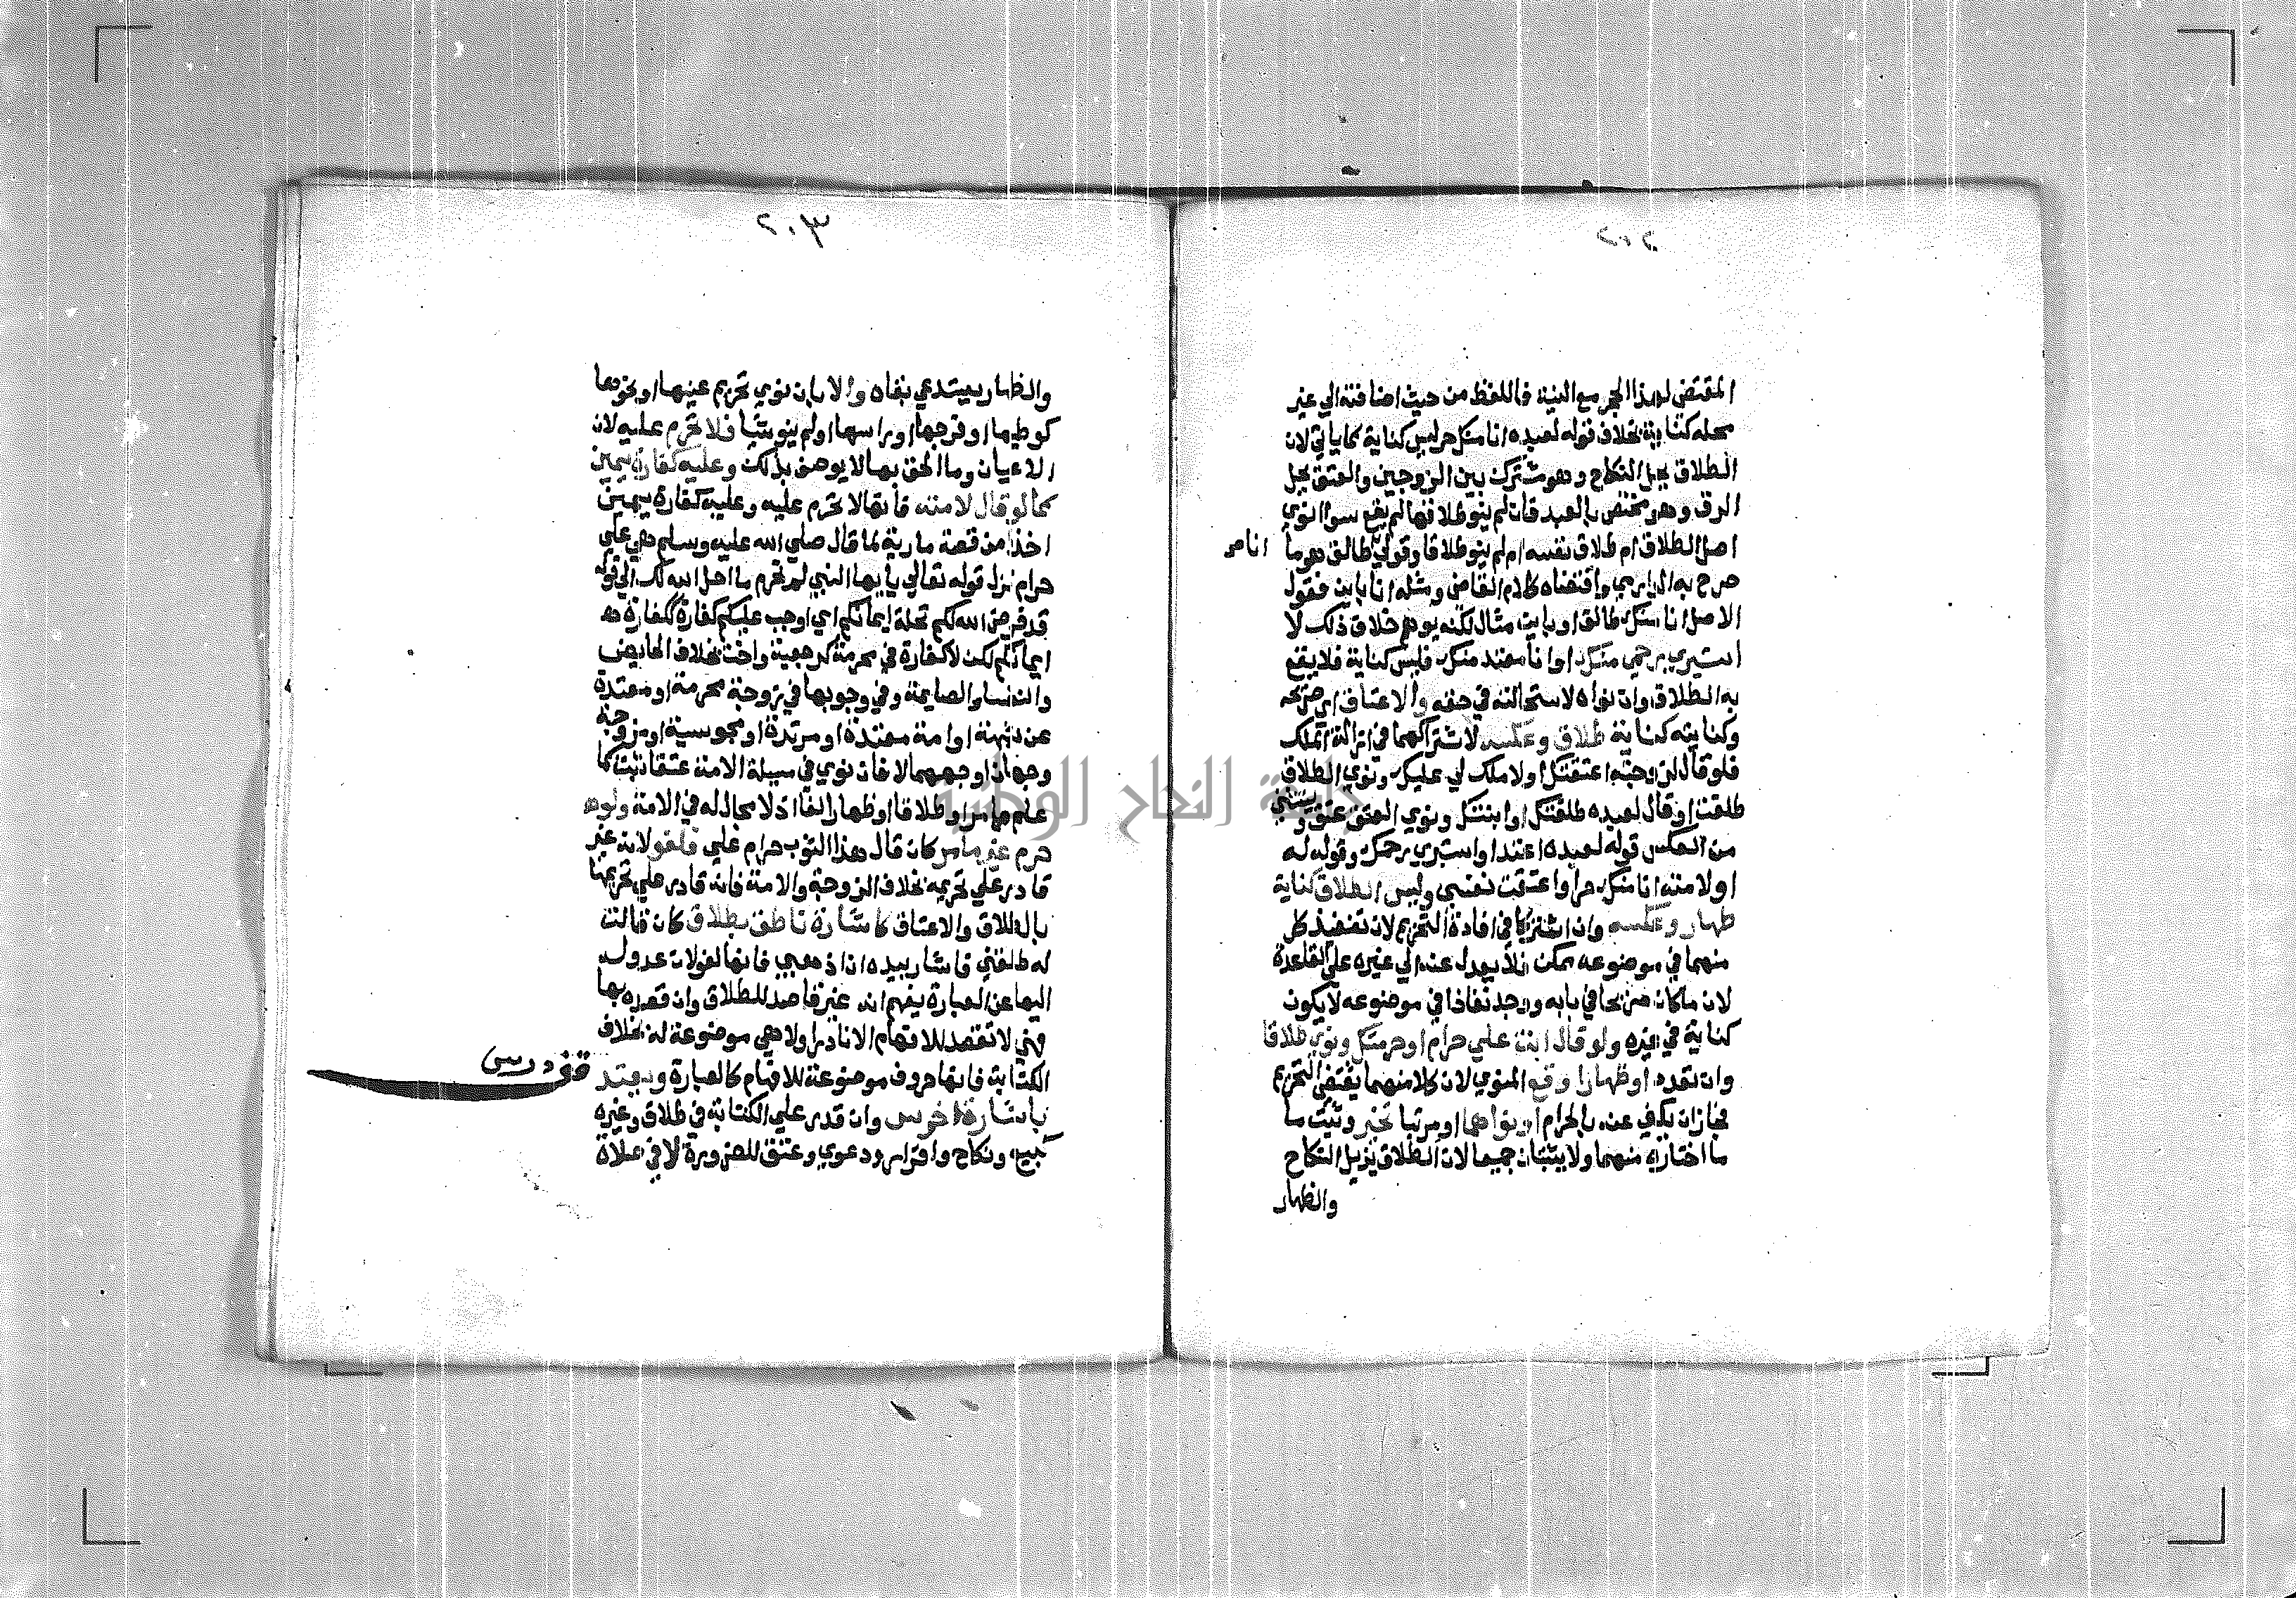 ٢٠٢
المقتضي لهذا الحجر مع النية فاللفظ من حيث اضافته الي غير
محله كناية بخلاف قوله لعبده انا منك حر ليس كناية كما ياتي لان
الطلاق يحل النكاح وهو مشترك بين الزوجين والعتق يحل
الرق وهو مختص بالعبد فان لم ينو طلاقها لم يقع سوا انوي
اصل الطلاق ام طلاق نفسه ام لم ينو طلاقا وقولي طالق هو ما
انا من
صرح به الدارمي واقتضاه كلام القاضي ومثله انا باين فقول
الاصل انا منك طالق او باين مثال لكنه يوهم خلاف ذلك لا
استبري رحمي منك او انا معتد منك فليس كناية فلا يقع
به الطلاق وان نواه لاستحالته في حقه والاعتاق اي صريحه
وكنايته كناية طلاق وعكسه لاشتراكهما في ازالة الملك
فلو قال لزوجته اعتقتك او لا ملك لي عليك ونوي الطلاق
طلقت او قال لعبده طلقتك او ابنتك ونوي العتق عتق ويستثني
من العكس قوله لعبده اعتد او استبري رحمك وقوله له
او لامته انا منك حر او اعتقت نفسي وليس الطلاق كناية
ظهار وعكسه وان اشتركا في افادة التحريم لان تنفيذ كل
منهما في موضوعه ممكن فلا يعدل عنه الي غيره علي القاعدة
لان ما كان صريحا في بابه ووجد نفاذا في موضوعه لا يكون
كناية في غيره ولو قال انت علي حرام او حرمتك ونوي طلاقا
وان تعدد او ظهارا وقع المنوي لان كلا منهما يقتضي التحريم
فجاز ان يكني عنه بالحرام او نواهما او مرتبا تخير وثبت ما
ما اختاره منهما ولا يثبتان جميعا لان الطلاق يزيل النكاح
والظهار
٢٠٣
والظهار يستدعي بقاه والا بان نوي تحريم عينها او نحوها
كوطيها او فرجها او راسها او لم ينو شيا فلا تحرم عليه لان
الاعيان وما الحق بها لا يوصف بذلك وعليه كفارة يمين
كما لو قال لامته فانها لا تحرم عليه وعليه كفارة يمين
اخذا من قصة مارية لما قال صلي الله عليه وسلم هي علي
حرام نزل قوله تعالي يايها النبي لم تحرم ما احل الله لك الي قوله
قد فرض الله لكم تحلة ايمانكم اي اوجب عليكم كفارة ككفارة
ايمانكم لكن لا كفارة في محرمة كرجعية واخت بخلاف الحايض
والنفسا والصايمة وفي وجوبها في زوجة محرمة او معتدة
عن شبهة او امة معتدة او مرتدة او مجوسية او مزوجة
وجهان اوجههما لا فان نوي في مسيلة الامة عتقا ثبت كما
علم مما مر او طلاقا او ظهارا لغا اذ لا مجال له في الامة ولو
حرم غير ما مر كان قال هذا الثوب حرام علي فلغو لانه غير
قادر علي تحريمه بخلاف الزوجة والامة فانه قادر علي تحريمها
بالطلاق والاعتاق كاشارة ناطق بطلاق كان قالت
له طلقني فاشار بيده ان اذهبي فانها لغو لان عدوله
اليها عن العبارة يفهم انه غير قاصد للطلاق وان قصده بها
فهي لا تقصد للافهام الا نادرا ولا هي موضوعة له بخلاف
الكتابة فانها حروف موضوعة للافهام كالعبارة ويعتد
باشارة اخرس وان قدر علي الكتابة في طلاق وغيره
كبيع ونكاح واقرار ودعوي وعتق للضرورة لا في صلاة
قف درس
جامعة النجاح الوطنية